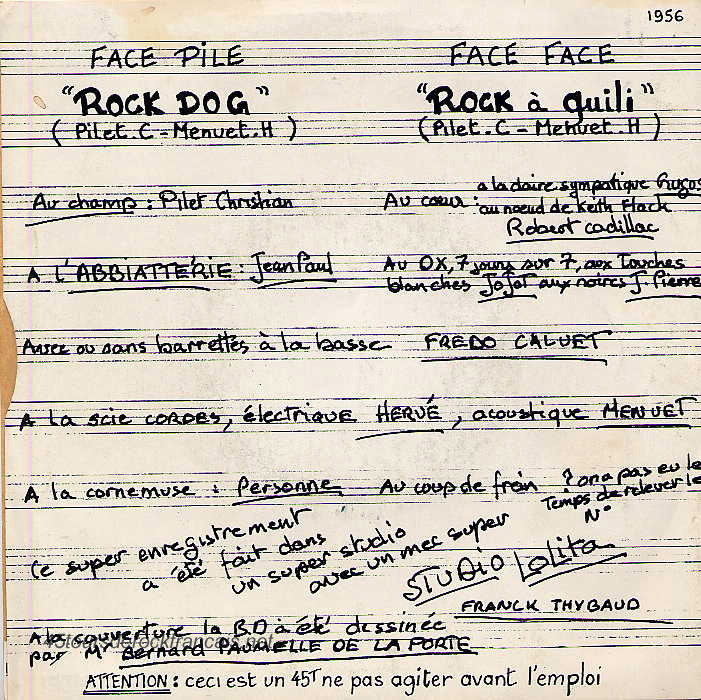 1956
FACE PILE
"ROCK DOG"
( Pilet.C - Menuet.H )
FACE FACE
"ROCK à Guili"
(Pilet.C - Menuet.H )
Au champ : Pilet Christian
Au cœur : a la claire sympatique
au noeud de Keith Flack
Robert Cadillac
A L'ABBIATTERIE : Jean Paul
Au OX, 7 jours sur 7, aux Touches
blanches JoJoT aux noires J. Pierre
Avec ou sans barrettes à la basse FREDO CALUET
A la scie CORDES, électrique HERVÉ, acoustique MENUET
A la cornemuse : Personne
Au coup de frein ? on a pas eu le
Temps de relever le
N°
Ce super enregistrement
a été fait dans
un super studio
avec un mec super
STUDIO Lolita
FRANCK THYBAUD
A la couverture la BD à été dessinée
par Mr Bernard PAUMELLE DE LA PORTE
ATTENTION : ceci est un 45T ne pas agiter avant l'emploi